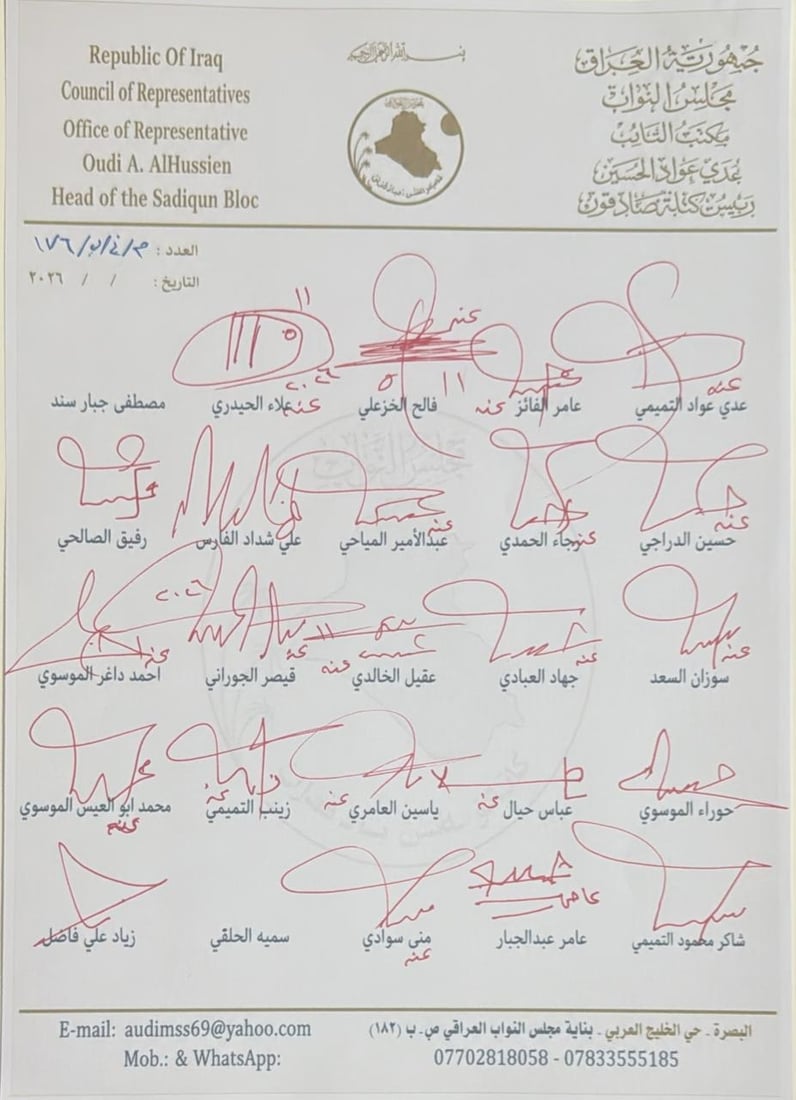 Republic Of Iraq
Council of Representatives
Office of Representative
Oudi A. AlHussien
Head of the Sadiqun Bloc
بسم الله الرحمن الرحيم
جمهورية العراق
مجلس النواب
مكتب النائب
عدي عواد الحسين
رئيس كتلة صادقون
العدد : م/غ/ب/١٧٦
التاريخ : / / ٢٠٢٦
عدي عواد التميمي عامر الفائز فالح الخزعلي علاء الحيدري مصطفى جبار سند
عنه عنه عنه عنه
٢٠٢٦ ٥ ١١
حسين الدراجي رجاء الحمدي عبدالأمير المياحي علي شداد الفارس رفيق الصالحي
عنه عنه عنه
سوزان السعد جهاد العبادي عقيل الخالدي قيصر الجوراني احمد داغر الموسوي
عنه عنه عنه عنه عنه
٢٠٢٦
حوراء الموسوي عباس حيال ياسين العامري زينب التميمي محمد ابو العيس الموسوي
عنه عنه عنه عنه
شاكر محمود التميمي عامر عبدالجبار منى سوادي سميه الحلقي زياد علي فاضل
عنه
مجلس النواب
البصرة ـ حي الخليج العربي ـ بناية مجلس النواب العراقي ص.ب (١٨٢)
07702818058 - 07833555185
E-mail: audimss69@yahoo.com
Mob.: & WhatsApp: